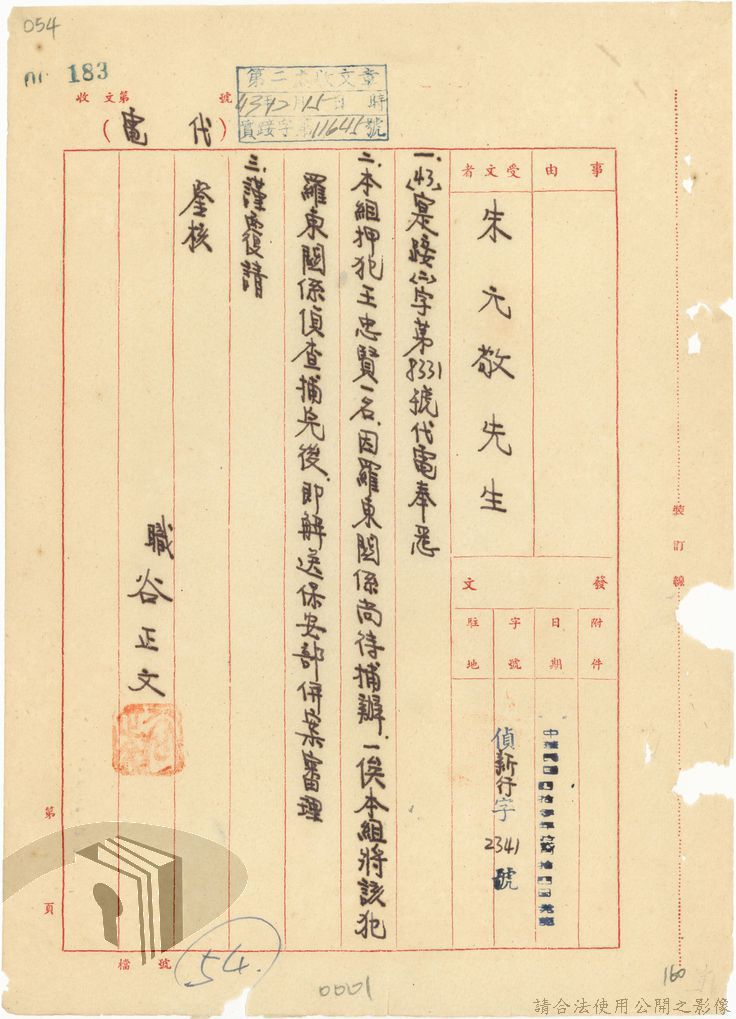 054
183
收文第 號
(代電)
第二
收文章
43年2月15日 時
字第11645號
事由
受文者
朱元敬先生
發文
附件
日期
字號
偵新行字2341號
駐地
一.(43)寔踐(二)字第8331號代電奉悉
二.本組押犯王忠賢一名.因羅東關係尚待捕辦.一俟本組將該犯
羅東關係偵查捕完後.即解送保安部併案審理
三.謹電復請
鉴核
職谷正文
裝訂線
第 頁
檔號
54.
0001
160
請合法使用公開之影像